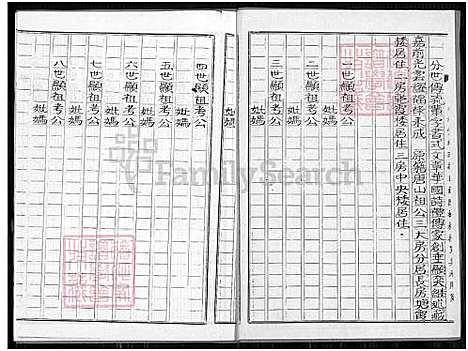 分世傳流輩字書式文章華國詩禮傳家創垂顯奕繼述
嘉前光雲礽綿序永成 原籍唐山祖公三大房分居長房塘霞
矮居住二房 矮居住三房中央矮居住.
一世顯祖考公
妣媽
二世顯祖考公
妣媽
三世顯祖考公
妣媽
四世顯祖考公
妣媽
五世顯祖考公
妣媽
六世顯祖考公
妣媽
七世顯祖考公
妣媽
八世顯祖考公
妣媽
FamilySearch